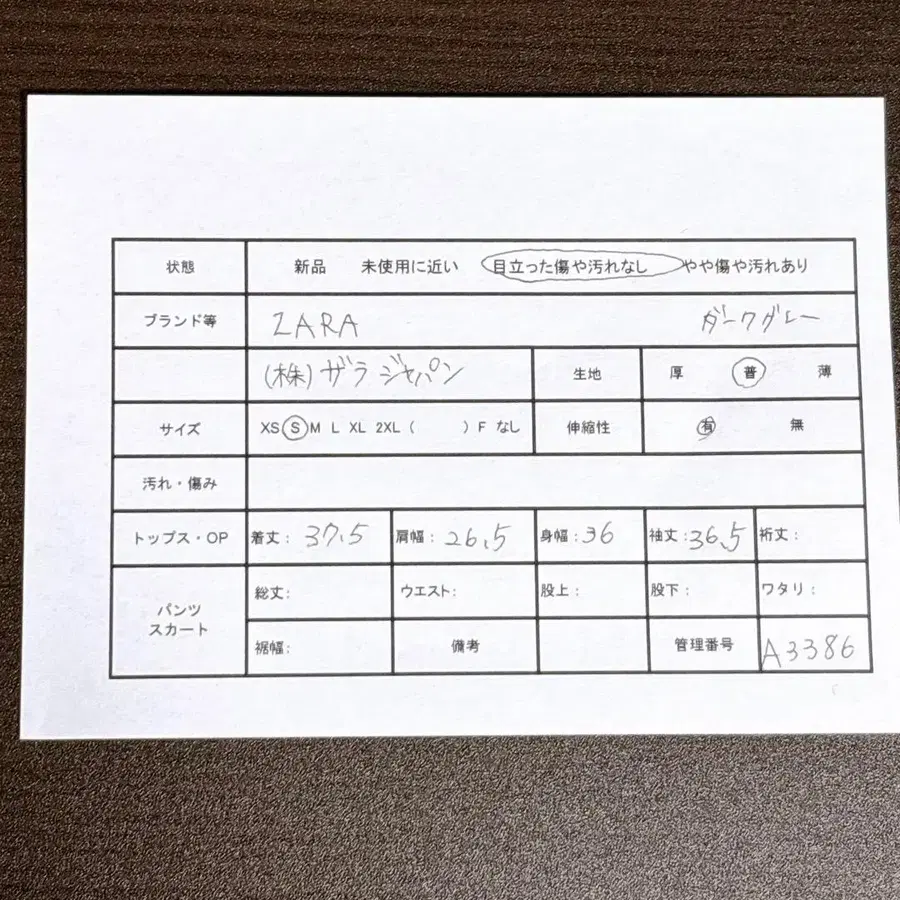 状態 新品 未使用に近い 目立った傷や汚れなし やや傷や汚れあり
ブランド等 ZARA ダークグレー
(株)ザラジャパン 生地 厚 普 薄
サイズ XS S M L XL 2XL ( ) F なし 伸縮性 有 無
汚れ・傷み
トップス・OP 着丈: 37.5 肩幅: 26.5 身幅: 36 袖丈: 36.5 裄丈:
パンツ スカート 総丈: ウエスト: 股上: 股下: ワタリ:
裾幅: 備考 管理番号 A3386